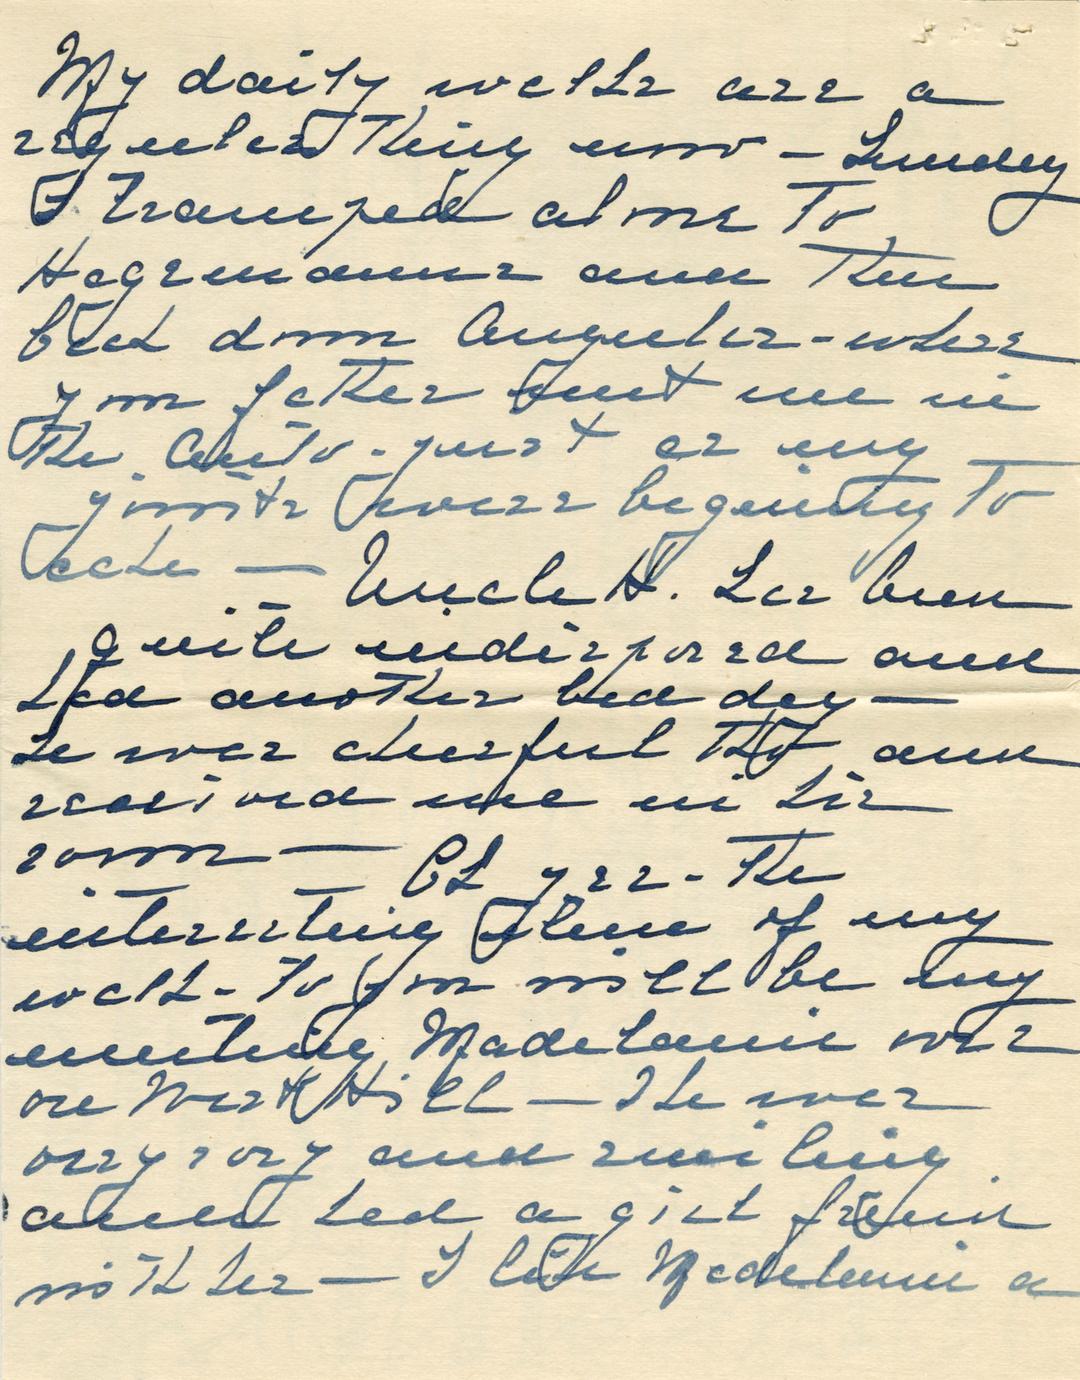 My daily walks are a
regular thing now – Sunday
I tramped alone to
Hagemanns and then
back down Augusta – where
your father met me in
the auto – just as my
joints were begining to
ache — Uncle H. has been
quite indisposed and
had another bad day —
he was cheerful tho and
received me in his
room — Oh yes – the
interesting phase of my
walk – to you will be my
meeting Madelaine
on West Hill — She was
very rosy and smiling
and had a girl friend
with her — I like Madelaine a